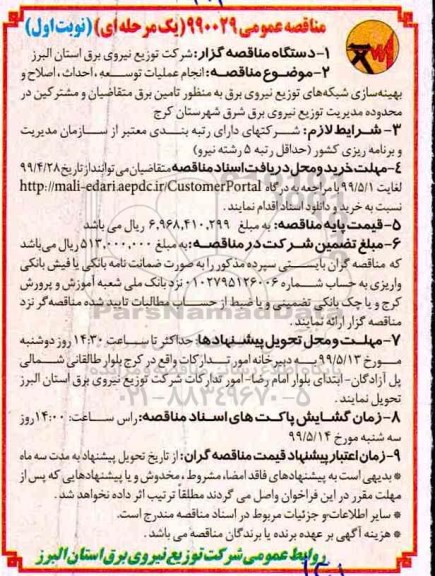 مناقصه عمومی ۹۹۰۰۲۹ (یک مرحله ای) (نوبت اول)
۱- دستگاه مناقصه گزار: شرکت توزیع نیروی برق استان البرز
۲- موضوع مناقصه: انجام عملیات توسعه، احداث، اصلاح و
بهینه‌سازی شبکه‌های توزیع نیروی برق به منظور تامین برق متقاضیان و مشترکین در
محدوده مدیریت توزیع نیروی برق شرق شهرستان کرج
۳- شرایط لازم: شرکتهای دارای رتبه بندی معتبر از سازمان مدیریت
و برنامه ریزی کشور (حداقل رتبه ۵ رشته نیرو)
۴- مهلت خرید و محل دریافت اسناد مناقصه متقاضیان می توانند از تاریخ ۹۹/۴/۲۸
لغایت ۹۹/۵/۱ با مراجعه به درگاه http://mali-edari.aepdc.ir/CustomerPortal
نسبت به خرید و دانلود اسناد اقدام نمایند.
۵- قیمت پایه مناقصه: به مبلغ ۶,۹۶۸,۴۱۰,۲۹۹ ریال می باشد
۶- مبلغ تضمین شرکت در مناقصه: به مبلغ ۵۱۳,۰۰۰,۰۰۰ ریال می‌باشد
که مناقصه گران بایستی سپرده مذکور را به صورت ضمانت نامه بانکی یا فیش بانکی
واریزی به حساب شماره ۰۱۰۲۷۹۵۱۲۶۰۰۶ نزد بانک ملی شعبه آموزش و پرورش
کرج و یا چک بانکی تضمینی و یا ضبط از حساب مطالبات تایید شده مناقصه گر نزد
مناقصه گزار ارائه نمایند.
۷- مهلت و محل تحویل پیشنهادها: حداکثر تا ساعت ۱۴:۳۰ روز دوشنبه
مورخ ۹۹/۵/۱۳ به دبیرخانه امور تدارکات واقع در کرج بلوار طالقانی شمالی
پل آزادگان- ابتدای بلوار امام رضا- امور تدارکات شرکت توزیع نیروی برق استان البرز
تحویل نمایند.
۸- زمان گشایش پاکت های اسناد مناقصه: راس ساعت: ۱۴:۰۰ روز
سه شنبه مورخ ۹۹/۵/۱۴
۹- زمان اعتبار پیشنهاد قیمت مناقصه گران: از تاریخ تحویل پیشنهاد به مدت سه ماه
* بدیهی است به پیشنهادهای فاقد امضا، مشروط، مخدوش و یا پیشنهادهایی که پس از
مهلت مقرر در این فراخوان واصل می گردند مطلقا ترتیب اثر داده نخواهد شد.
* سایر اطلاعات و جزئیات مربوط در اسناد مناقصه مندرج است.
* هزینه آگهی بر عهده برنده یا برندگان مناقصه می باشد.
روابط عمومی شرکت توزیع نیروی برق استان البرز
ParsNamadData
۰۲۱-۸۸۳۴۹۶۷۰-۵